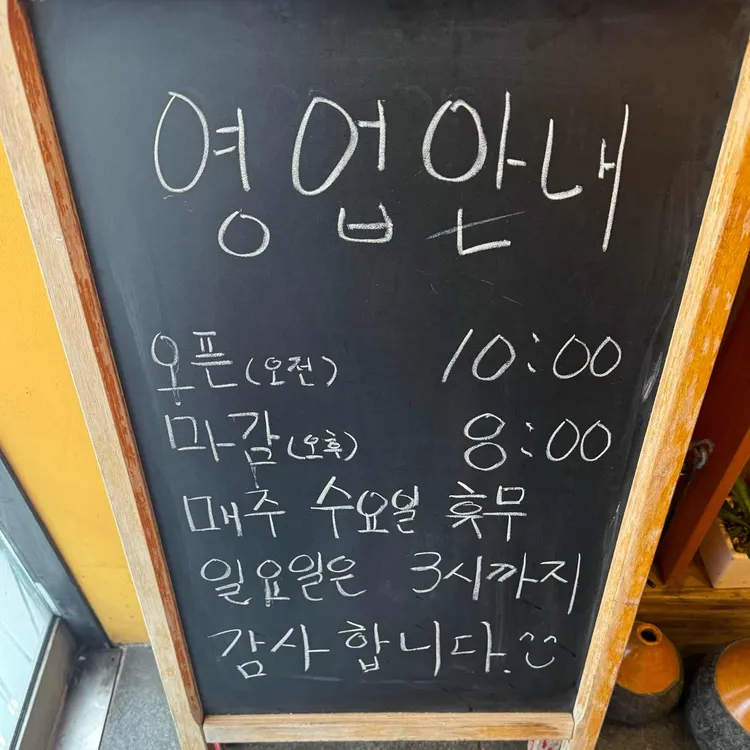 영업안내
오픈(오전) 10:00
마감(오후) 8:00
매주 수요일 휴무
일요일은 3시까지
감사합니다.^^